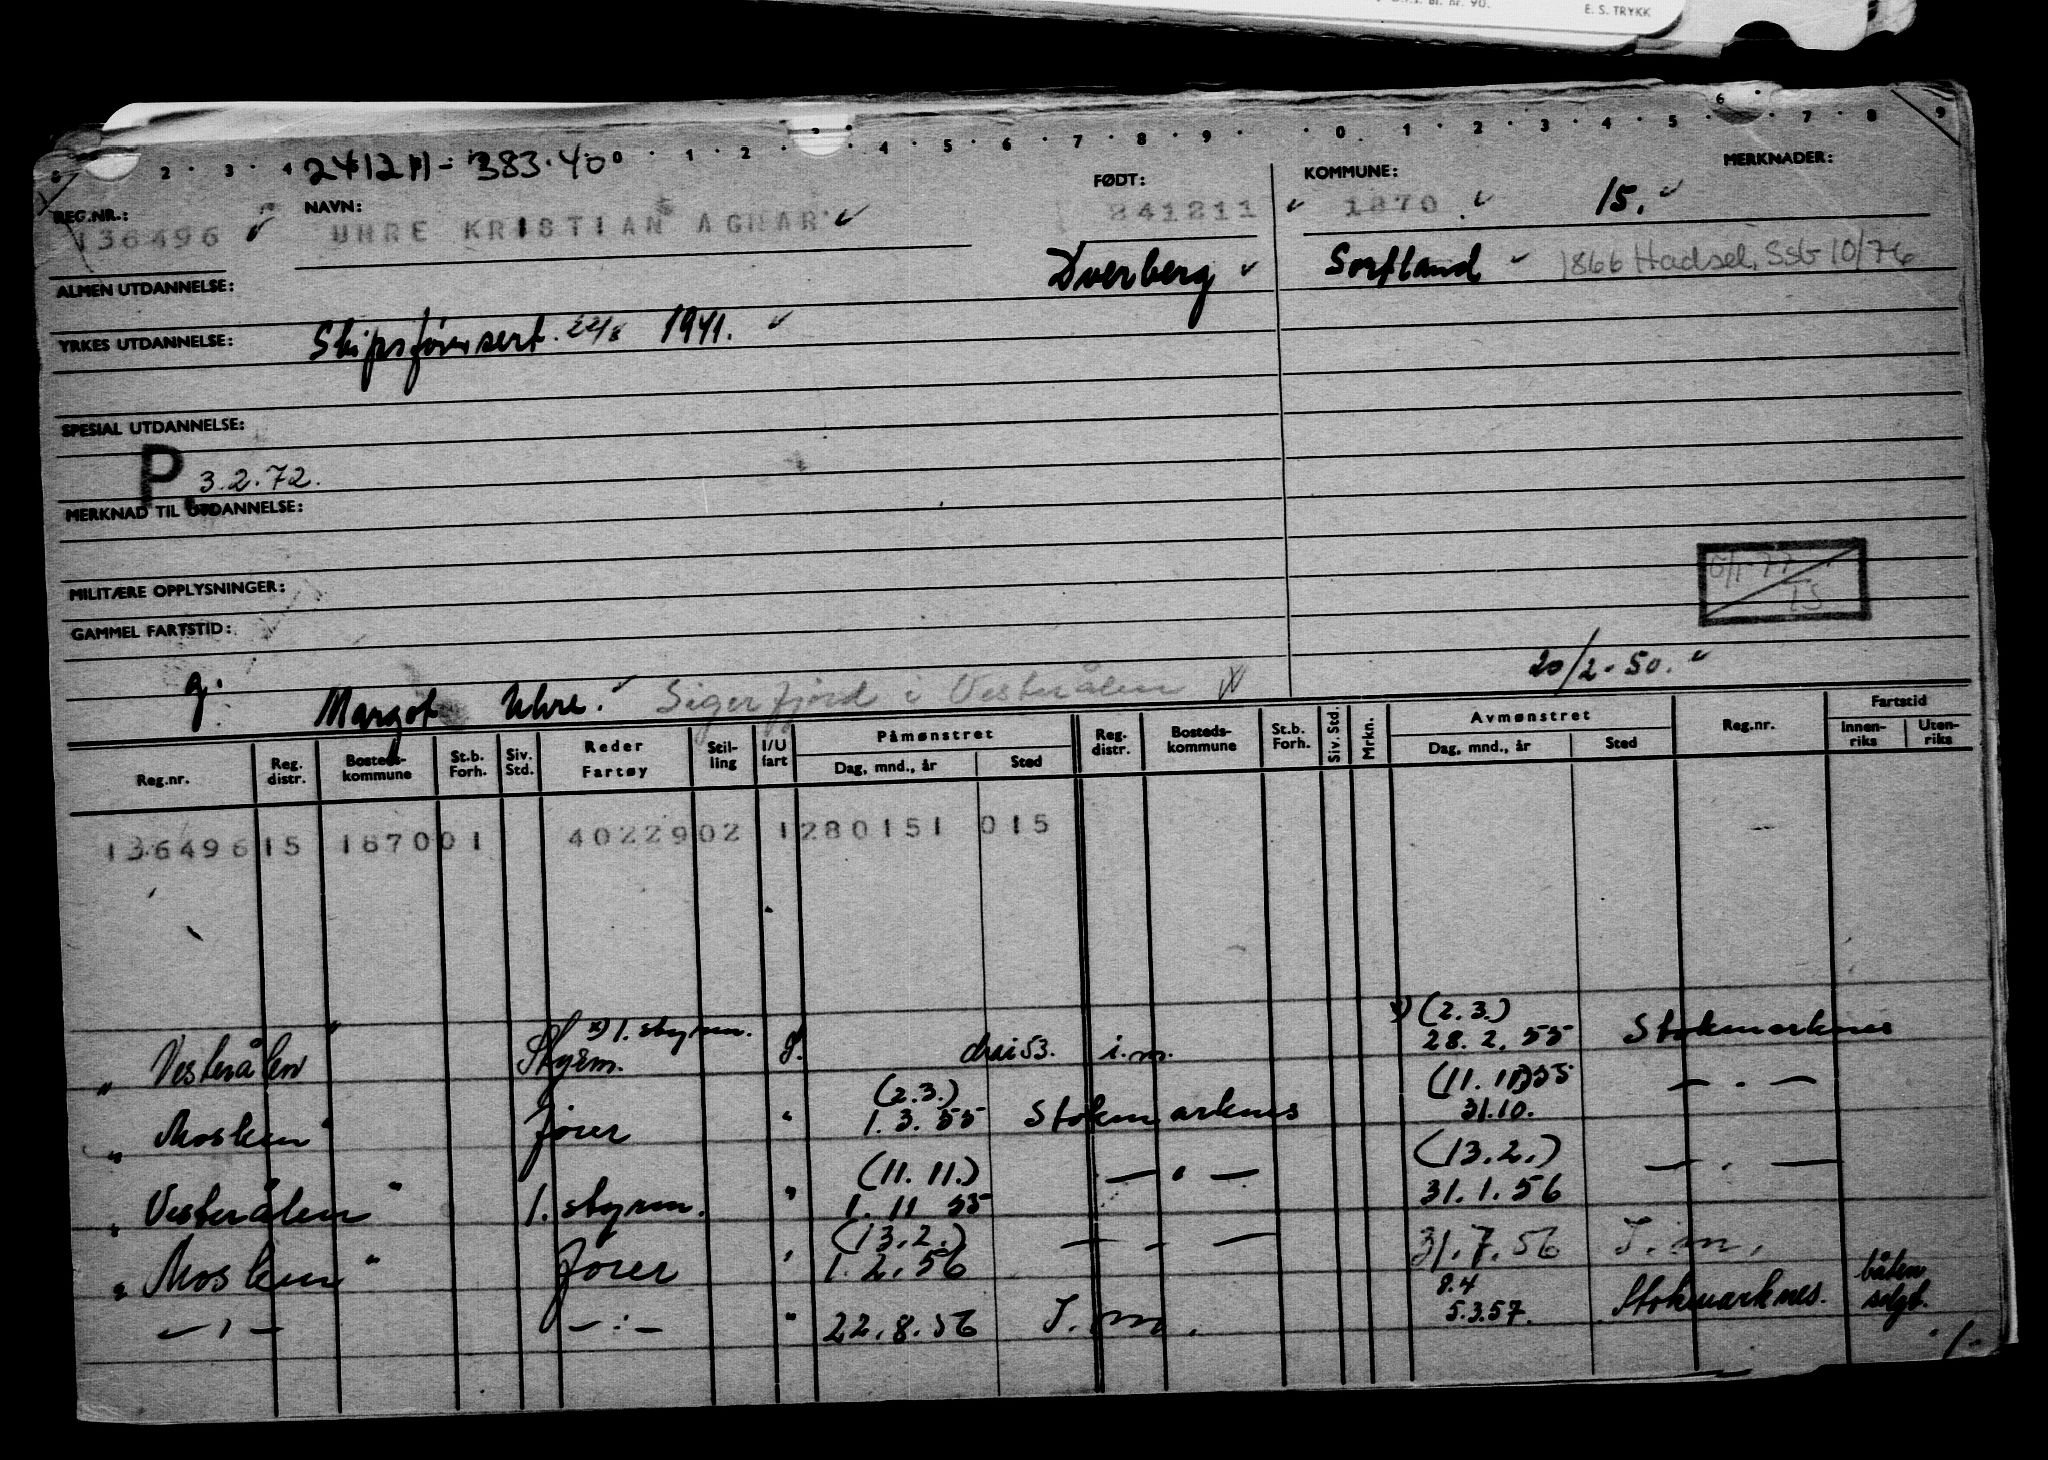 E. S. TRYKK
2 · 3 · 4 0 · 1 · 2 · 3 · 4 · 5 · 6 · 7 · 8 · 9 · 0 · 1 · 2 · 3 · 4 · 5 · 6 · 7 · 8 9
2412H - 383.40
REG.NR.: NAVN: FØDT: KOMMUNE: MERKNADER:
136496 UHRE KRISTIAN AGNAR 241211 1870 15.
Dverberg Sortland 1866 Hadsel, Ssb 10/76
ALMEN UTDANNELSE:
YRKES UTDANNELSE: Skipsførersert. 22/8 1941.
SPESIAL UTDANNELSE:
P. 3.2.72.
MERKNAD TIL UTDANNELSE:
MILITÆRE OPPLYSNINGER:
6/1-77
TS
GAMMEL FARTSTID:
20/2-50.
g. Margot Uhre. Sigerfjord i Vesterålen
Reg.nr. Reg. distr. Bosteds-kommune St.b. Forh. Siv. Std. Reder Fartøy Stil-ling I/U fart Påmønstret Dag, mnd., år Sted Reg. distr. Bosteds-kommune St.b. Forh. Siv. Std. Mrkn. Avmønstret Dag, mnd., år Sted Reg.nr. Fartstid Innen-riks Uten-riks
136496 15 1870 01 40229 02 1 280151 015
x) 1. styrm. x) (2.3.)
„ Vesterålen" Styrm. I. i.m. 28.2.55 Stokmarknes
(2.3.) (11.11) 55
„ Mosken" fører " 1.3.55 Stokmarknes 31.10. — . —
(11.11.) (13.2.)
„ Vesterålen" 1. styrm. " 1.11 55 — " — 31.1.56 — . —
(13.2.)
„ Mosken" fører " 1.2.56 — " — 31.7.56 I.m.
8.4 båten
— " — — : — " 22.8.56 I.m. 5.3.57. Stokmarknes. solgt.